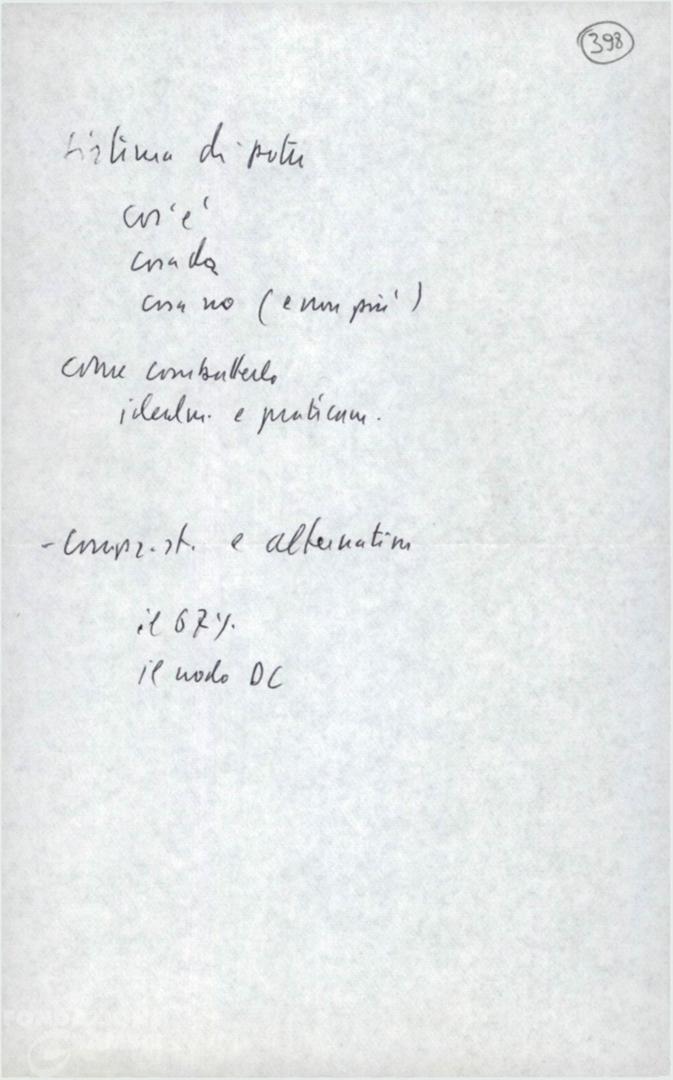 398
sistema di potere
cos'è
cosa dà
cosa no (e non più)
come combatterlo
idealm. e praticam.
- comp. st. e alternativa
il 67%.
il nodo DC